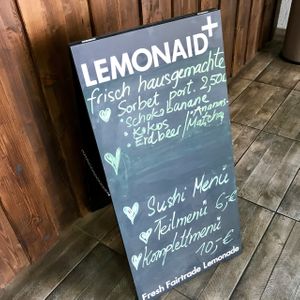 LEMONAID+
frisch hausgemachte
Sorbet port. 2,50€
Schokobanane
Kokos
Ananas-
Erdbeer/Matcha
Sushi Menü
Teilmenü 6,-€
Komplettmenü
10,-€
Fresh Fairtrade Lemonade